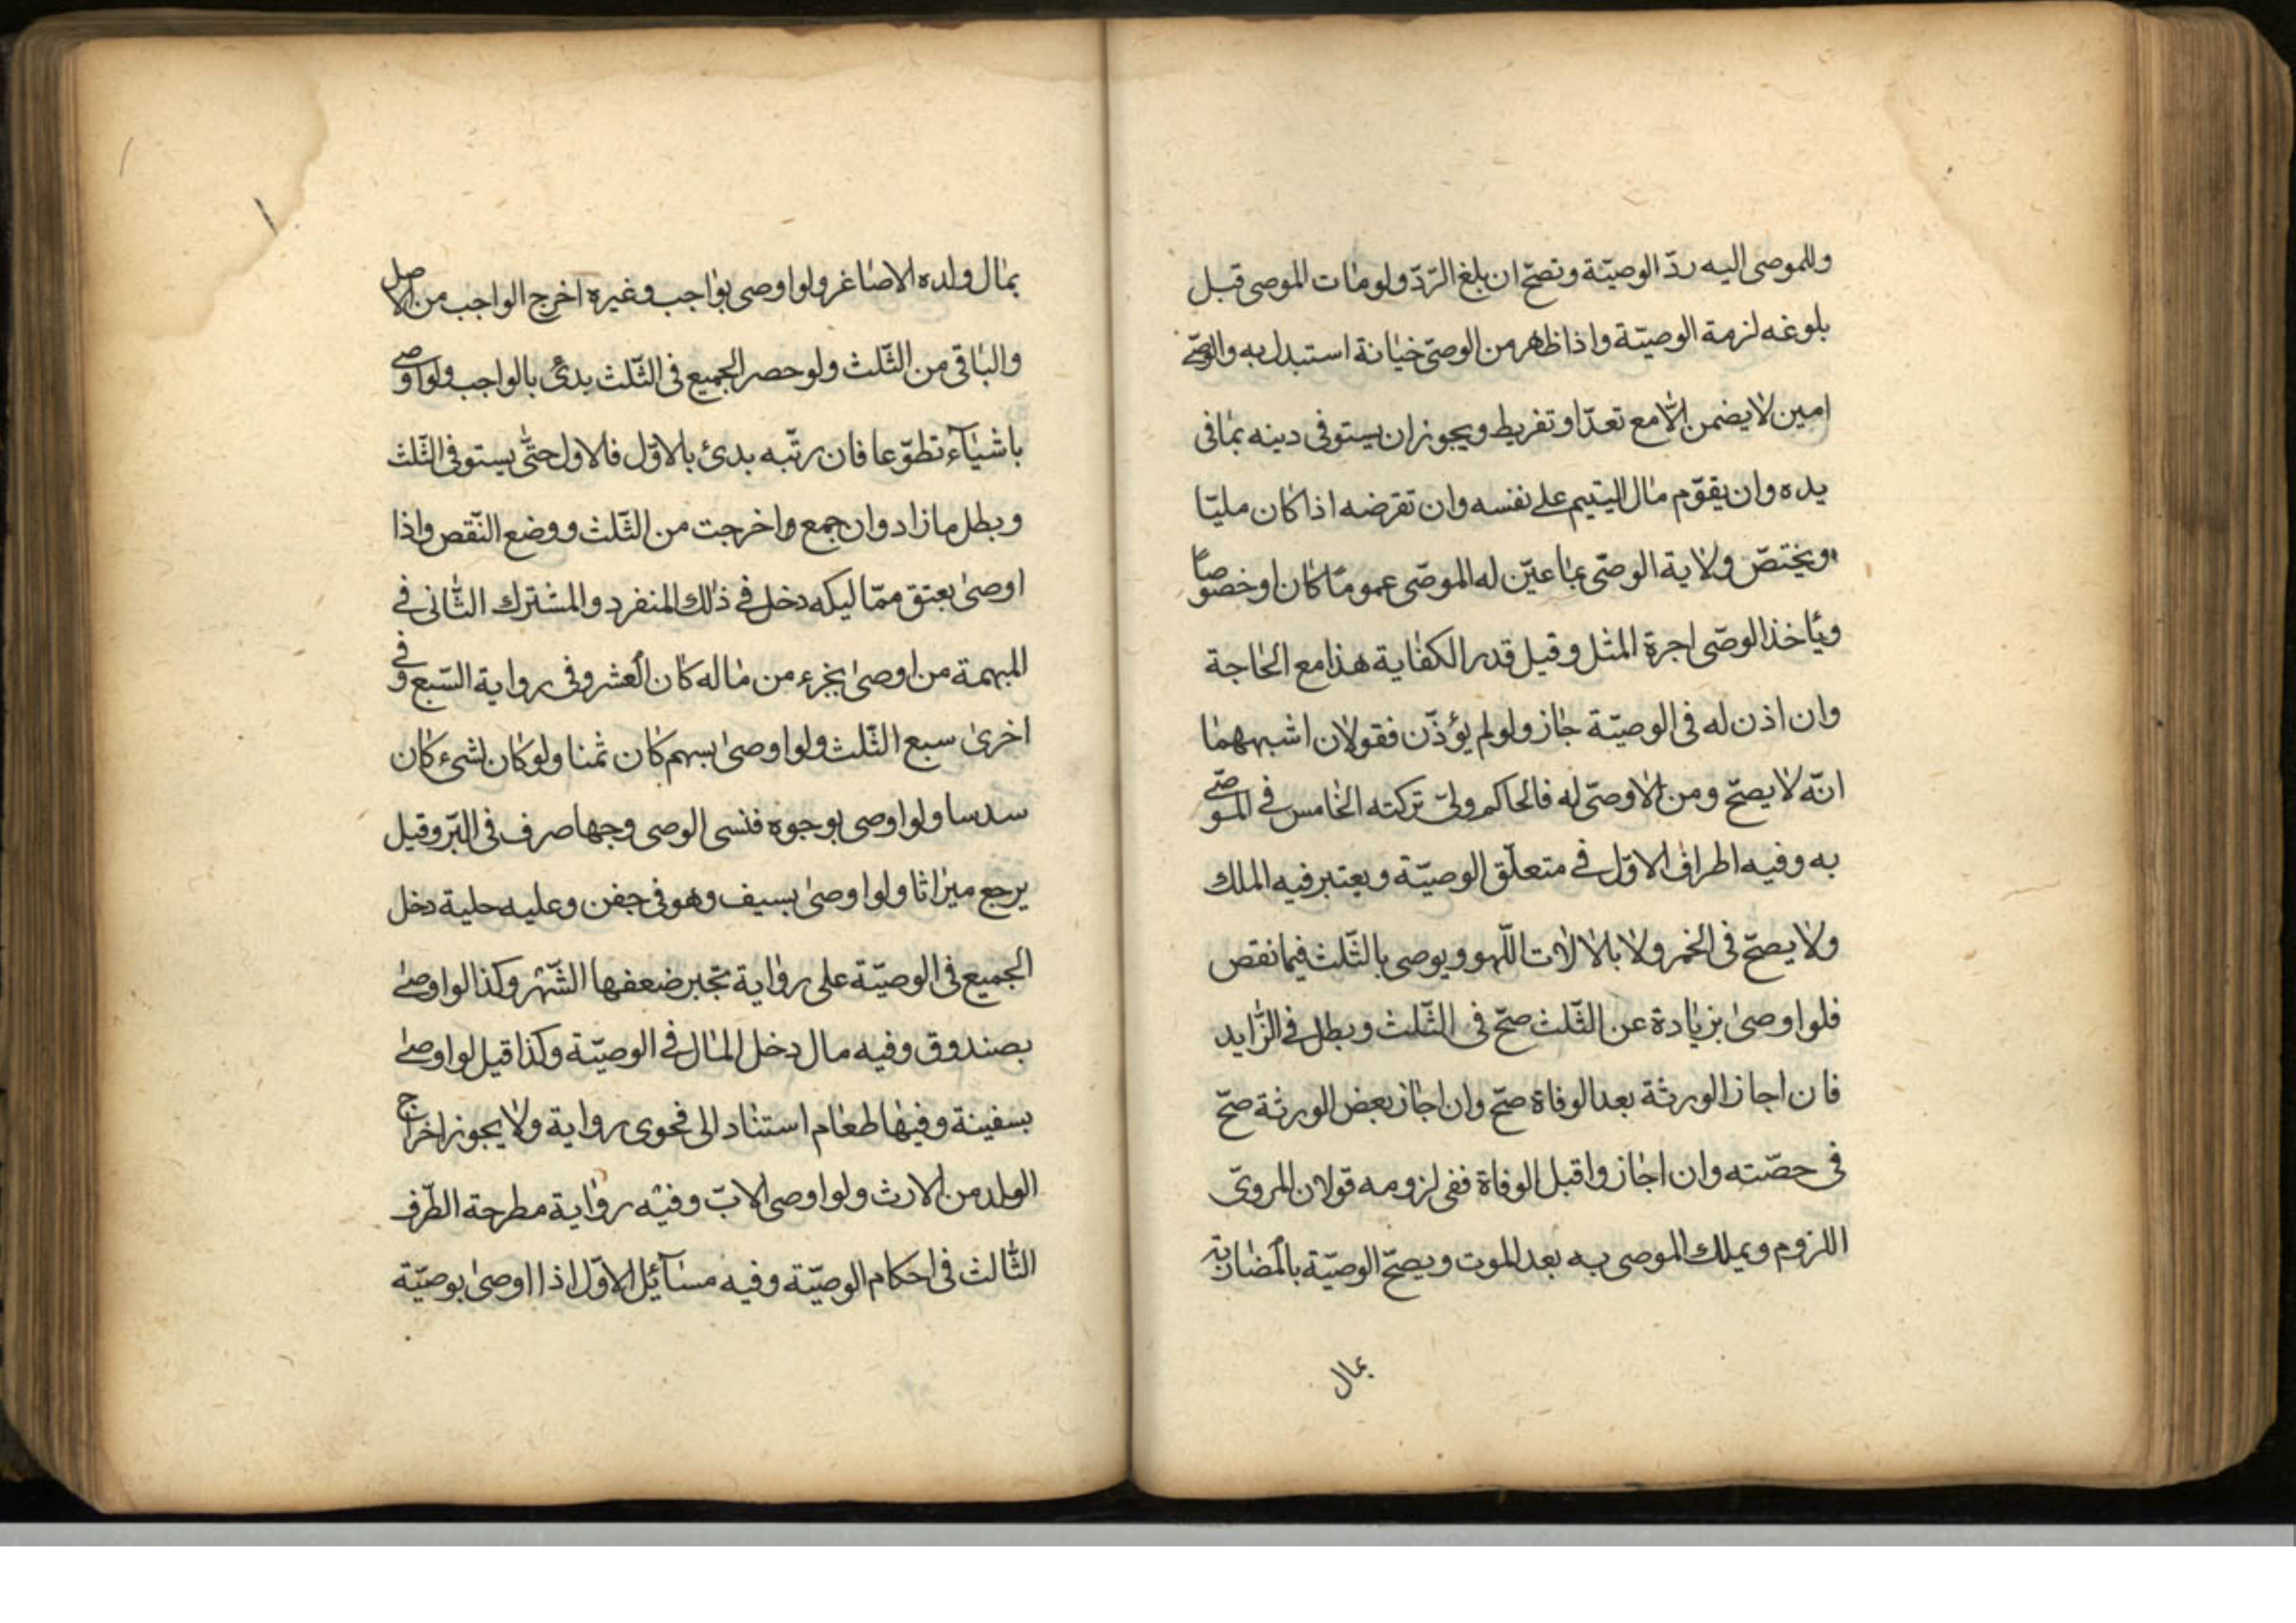 وللموصى اليه ردّ الوصيّة وتصحّ ان بلغ الرّدّ ولو مات الموصى قبل
بلوغه لزمة الوصيّة واذا ظاهر من الوصىّ خيانة استبدل به والوصىّ
امين لا يضمن الّا مع تعدّ او تفريط ويجوز ان يستوفى دينه بما فى
يده وان يقوّم مال اليتيم على نفسه وان تقرضه اذا كان مليّا
ويختصّ ولاية الوصّى بما عيّن له الموصّى عموما كان او خصوصا
ويأخذ الوصّى اجرة المثل وقيل قدر الكفاية هذا مع الحاجة
وان اذن له فى الوصيّة جاز ولو لم يؤذّن فقولان اشبههما
انّه لا يصحّ ومن لا وصّى له فالحاكم ولىّ تركته الخامس فى الموصّى
به وفيه اطراف الاوّل فى متعلّق الوصيّة ويعتبر فيه الملك
ولا يصحّ فى الخمر ولا بالالات اللّهو ويوصى بالثّلث فيما نقص
فلو اوصى بزيادة عن الثّلث صحّ فى الثّلث وبطل فى الزّايد
فان اجاز الورثة بعد الوفاة صحّ وان اجاز بعض الورثة صحّ
فى حصّته وان اجازوا قبل الوفاة ففى لزومه قولان المروىّ
اللزوم ويملك الموصى به بعد الموت ويصحّ الوصيّة بالمضاربة
بمال
بمال ولده الاصاغر ولو اوصى بواجب وغيره اخرج الواجب من الاصل
والباقى من الثّلث ولو حصر الجميع فى الثّلث بدئ بالواجب ولو اوصى
باشيآء تطوّعا فان رتّبه بدئ بالاوّل فلاول حتّى يستوفى الثّلث
وبطل ما زاد وان جمع واخرجت من الثّلث ووضع النّقص واذا
اوصى بعتق ممّاليكه دخل فى ذلك المنفرد والمشترك الثّانى فى
المبهمة من اوصى بجزء من ماله كان العشر وفى رواية السّبع وفى
اخرى سبع الثّلث ولو اوصى بسهم كان ثمنا ولو كان بشىء كان
سدسا ولو اوصى بوجوه فنسى الوصى وجها صرف فى البّر وقيل
يرجع ميراثا ولو اوصى بسيف وهو فى جفن وعليه حلية دخل
الجميع فى الوصيّة على رواية تجبر ضعفها الشّهر وكذا لو اوصى
بصندوق وفيه مال دخل المال فى الوصيّة وكذا قيل لو اوصى
بسفينة وفيها طعام استناد الى فحوى رواية ولا يجوز اخراج
الولد من الارث ولو اوصى الابّ وفيه رواية مطرحة الطّرف
الثّالث فى احكام الوصيّة وفيه مسآئيل الاوّل اذا اوصى بوصيّة